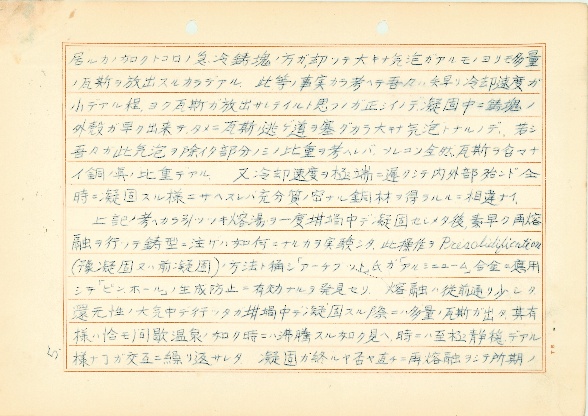 居ルカノ如クトコロノ急冷鋳塊ノ方ガ却ツテ大キナ気泡ガアルモノヨリモ多量
ノ瓦斯ヲ放出スルカラデアル. 此等ノ事実カラ考ヘテ吾々ハ矢張リ冷却速度ガ
小デアル程ヨク瓦斯ガ放出サレテイルト思フノガ正シイノデ, 凝固中ニ鋳塊ノ
外殻ガ早ク出来テ, タメニ瓦斯ノ逃ゲ道ヲ塞グカラ大キナ気泡トナルノデ, 若シ
吾々ガ此気泡ヲ除イタ部分ノミノ比重ヲ考ヘレバ, ソレコソ全然瓦斯ヲ含マナ
イ銅ノ真ノ比重デアル. 又冷却速度ヲ極端ニ遅クシテ内外部殆ンド仝
時ニ凝固スル様ニサヘスレバ充分質ノ密ナル鋼材ヲ得ラルルニ相違ナイ.
上記ノ考ヘカラ引ツヅキ熔湯ヲ一度坩堝中デ凝固セシメタ後素早ク再熔
融ヲ行ツテ鋳型ニ注ゲバ如何ニナルカヲ実験シタ. 此操作ヲ Presolidification
(豫凝固又ハ前凝固)ノ方法ト稱シ 氏ガ「アルミニユーム」合金ニ應用
シテ「ピンホール」ノ生成防止ニ有効ナルヲ発見セリ. 熔融ハ従前通リ少シク
還元性ノ大気中デ行ツタガ坩堝中デ凝固スル際ニハ多量ノ瓦斯ガ出タ. 其有
様ハ恰モ間歇温泉ノ如ク時ニハ沸騰スル如ク見ヘ, 時ニハ至極静穏デアル
様ナコガ交互ニ繰リ返サレタ. 凝固ガ終ルヤ否ヤ直チニ再熔融ヲシテ所期ノ